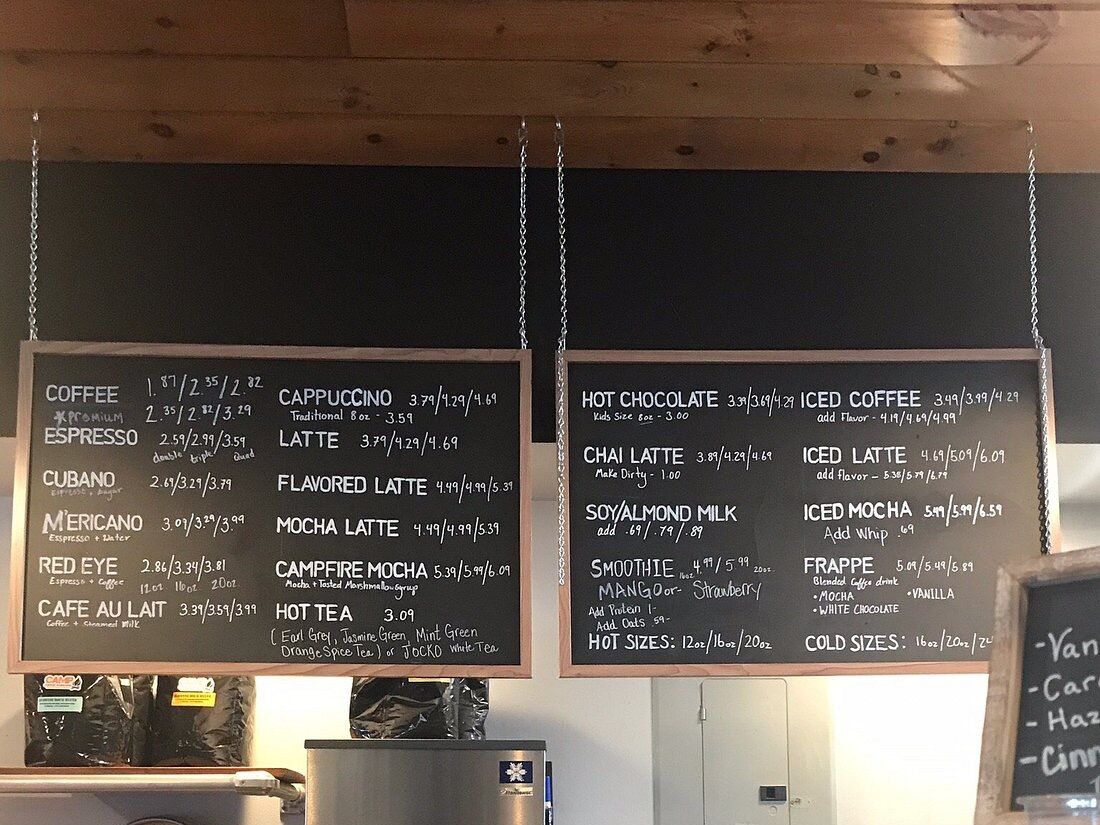 COFFEE 1.87/2.35/2.82
*PREMIUM 2.35/2.82/3.29
ESPRESSO 2.59/2.99/3.59
double triple Quad
CUBANO 2.69/3.29/3.79
Espresso + Sugar
M'ERICANO 3.09/3.29/3.99
Esspresso + Water
RED EYE 2.86/3.34/3.81
Espresso + Coffee
12oz. 16oz. 20oz.
CAFE AU LAIT 3.39/3.59/3.99
Coffee + Steamed Milk
CAPPUCCINO 3.79/4.29/4.69
Traditional 8oz - 3.59
LATTE 3.79/4.29/4.69
FLAVORED LATTE 4.49/4.99/5.39
MOCHA LATTE 4.49/4.99/5.39
CAMPFIRE MOCHA 5.39/5.99/6.09
Mocha + Tosted Marshmallow Syrup
HOT TEA 3.09
(Earl Grey, Jasmine Green, Mint Green
Orange Spice Tea) or JOCKO White Tea
HOT CHOCOLATE 3.39/3.69/4.29
Kids Size 8oz - 3.00
CHAI LATTE 3.89/4.29/4.69
Make Dirty - 1.00
SOY/ALMOND MILK
add .69/.79/.89
SMOOTHIE 16oz 4.99/5.99 20oz.
MANGO or Strawberry
Add Protein 1-
Add Oats .59-
HOT SIZES: 12oz/16oz/20oz
ICED COFFEE 3.49/3.99/4.29
add Flavor - 4.19/4.69/4.99
ICED LATTE 4.69/5.09/6.09
add flavor - 5.38/5.79/6.79
ICED MOCHA 5.49/5.99/6.59
Add Whip .69
FRAPPE 5.09/5.49/5.89
Blended Coffee drink
• MOCHA • VANILLA
• WHITE CHOCOLATE
COLD SIZES: 16oz/20oz/24
- Van
- Car
- Haz
- Cinn
CAMP